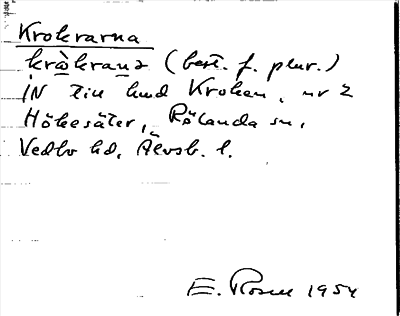 Krokrarna
kràkrana (best. f. plur.)
IN till hmd Kroken, nr 2
Hökesäter, Rölanda sn,
Vedbo hd, Älvsb. l.
E. Rosell 1954